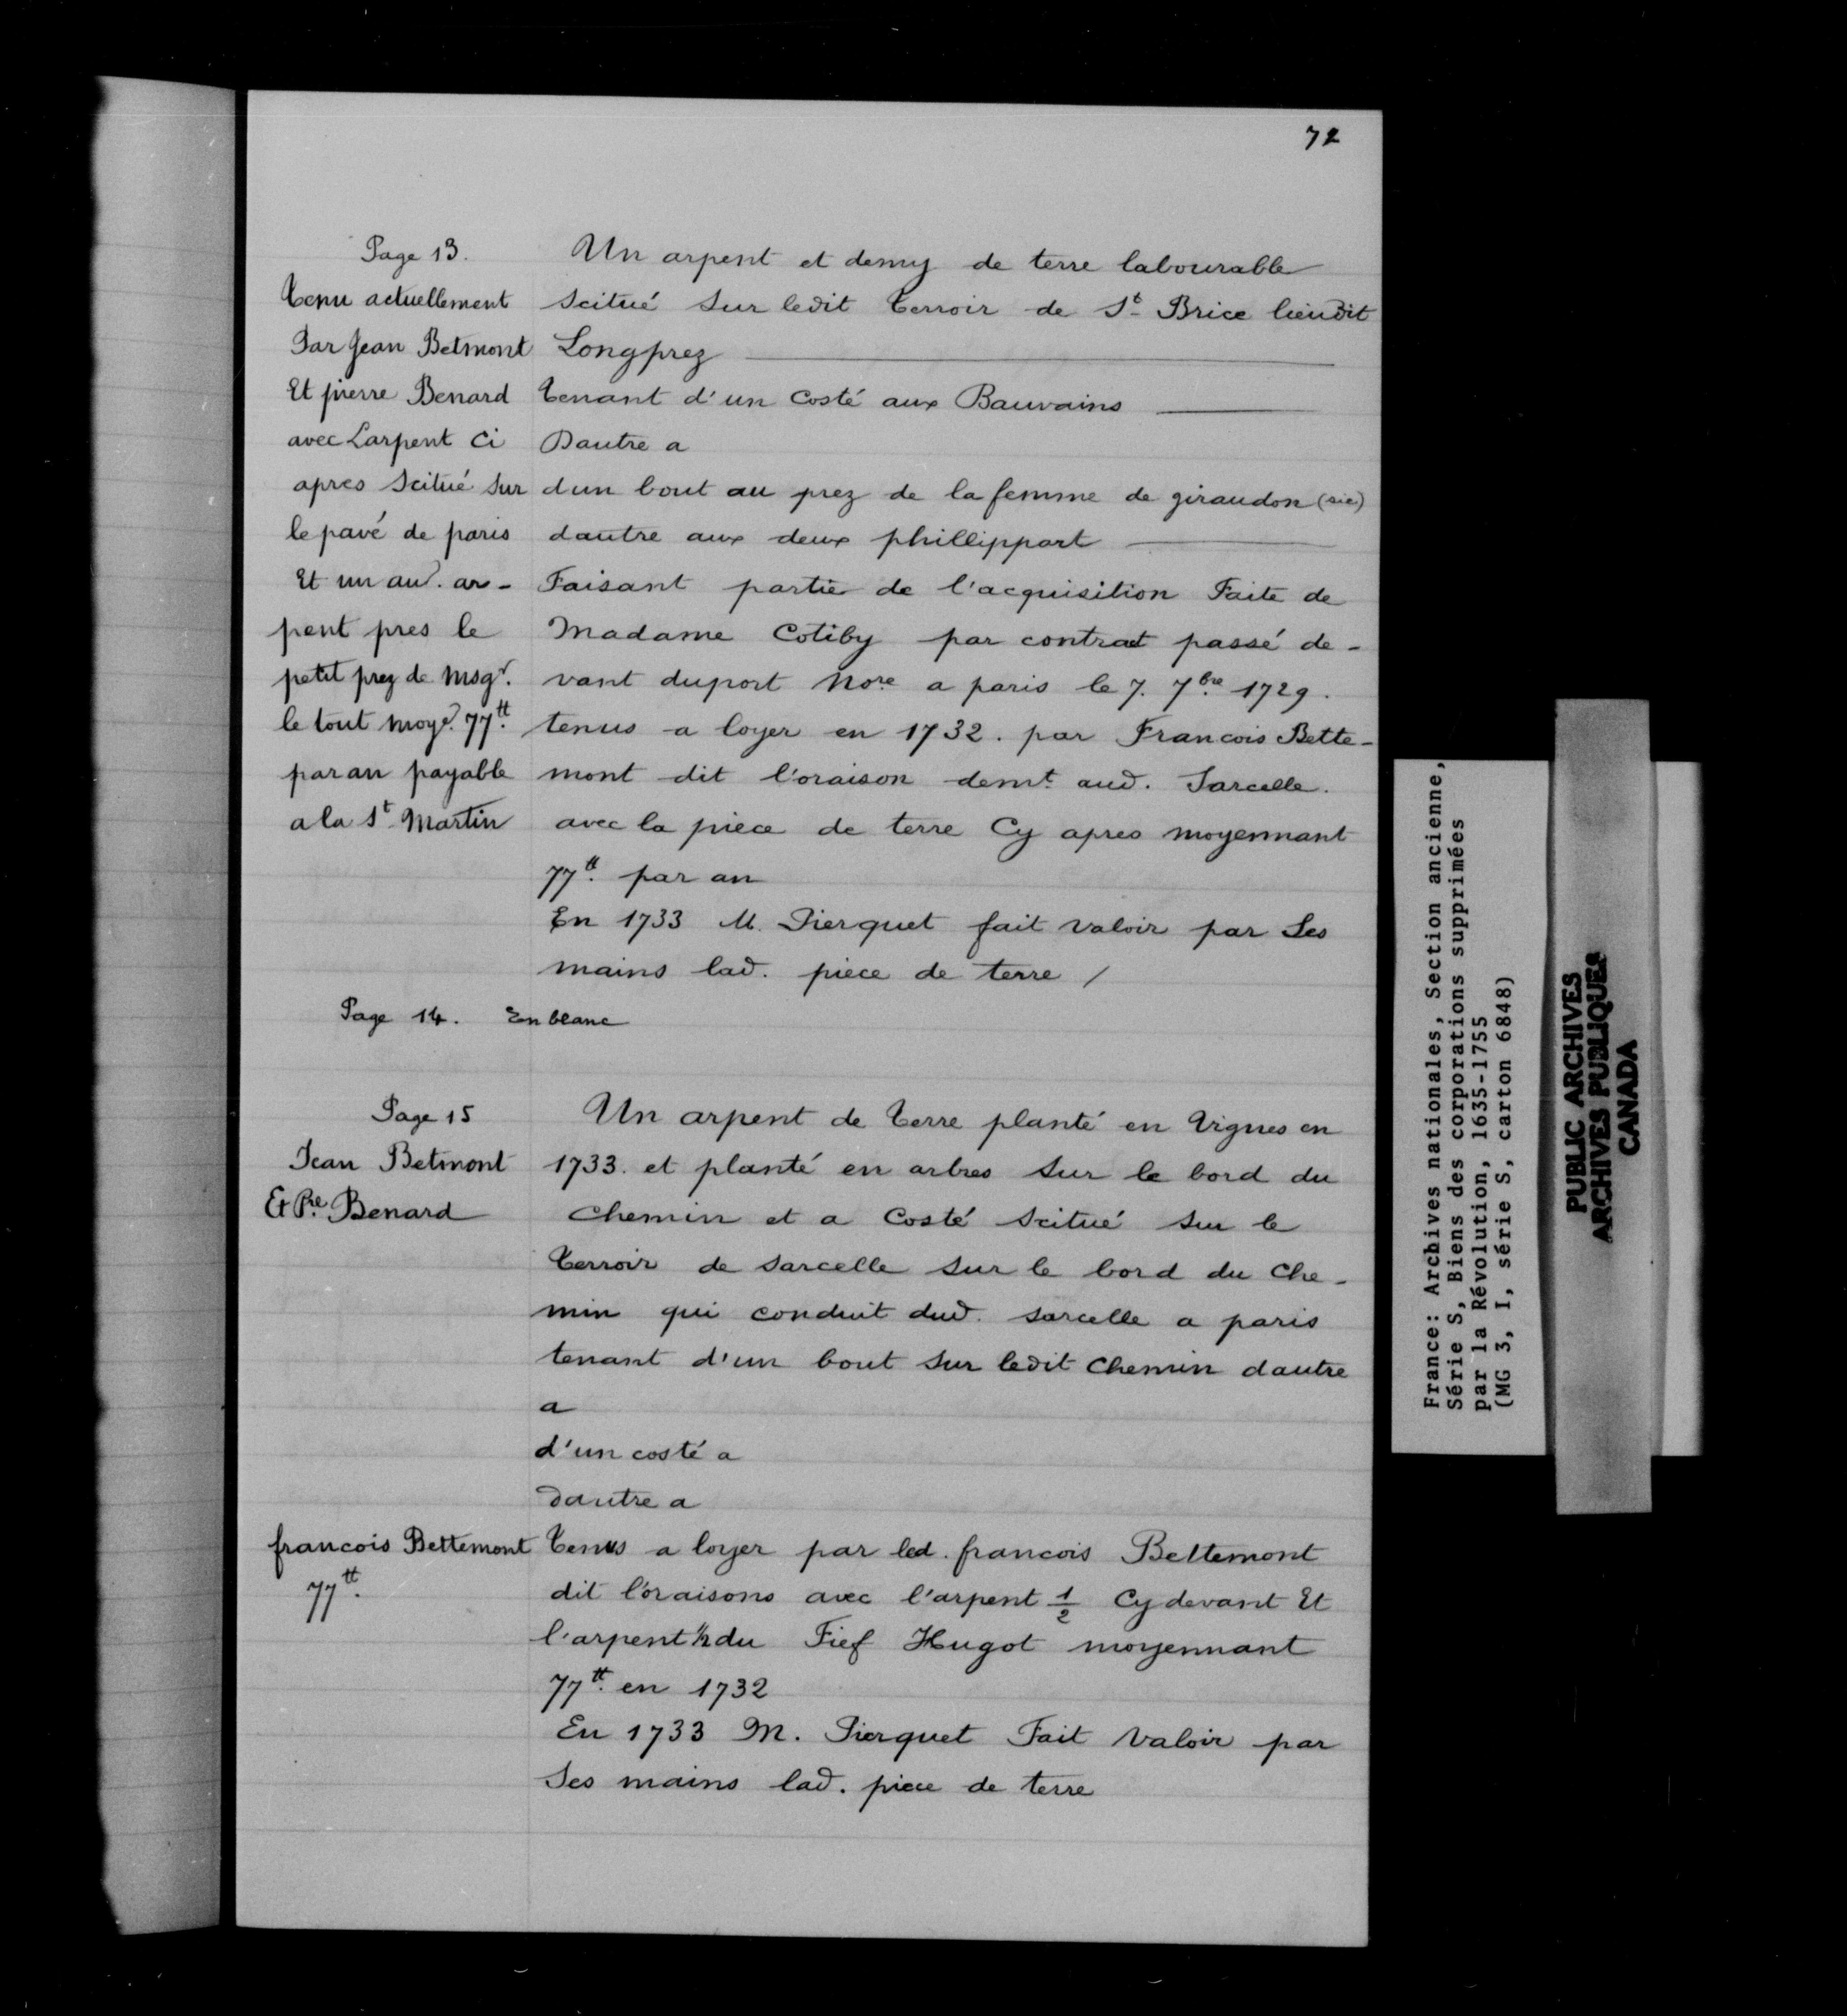 72
Page 13.
Tenu actuellement
Par Jean Betmont
Et pierre Benard
avec Larpent Ci
apres Scitué sur
le pavé de paris
Et un aud. ar-
pent pres le
petit prez de Msgr.
le tout moyt. 77tt.
par an payable
a la St. Martin
Un arpent et demy de terre labourable
Scitué sur ledit Terroir de St. Brice lieudit
Longprez
Tenant d'un Costé aux Bauvains
Dautre a
dun bout au prez de la femme de giraudon (sic)
dautre aux deux phillippart
Faisant partie de l'acquisition Faite de
Madame Cotiby par contract passé de-
vant duport Nore a paris le 7. 7bre 1729.
tenus a loyer en 1732. par Francois Bette-
mont dit l'oraison demt. aud. Sarcelle.
avec la piece de terre Cy apres moyennant
77tt. par an
En 1733 M. Pierquet fait valoir par Ses
mains lad. piece de terre /
Page 14. En blanc
Page 15
Jean Betmont
Et Pre. Benard
Un arpent de Terre planté en Vignes en
1733. et planté en arbres sur le bord du
Chemin et a Costé Scitué sur le
Terroir de Sarcelle sur le bord du Che-
min qui conduit dud. Sarcelle a paris
tenant d'un bout sur ledit Chemin dautre
a
d'un costé a
dautre a
francois Bettemont
77tt.
Tenus a loyer par led. francois Bettemont
dit l'oraisons avec l'arpent 1/2 Cy devant Et
l'arpent 1/2 du Fief Hugot moyennant
77tt. en 1732
En 1733 M. Pierquet Fait Valoir par
Ses mains lad. piece de terre
France: Archives nationales, Section ancienne,
Série S, Biens des corporations supprimées
par la Révolution, 1635-1755
(MG 3, I, série S, carton 6848)
PUBLIC ARCHIVES
ARCHIVES PUBLIQUES
CANADA